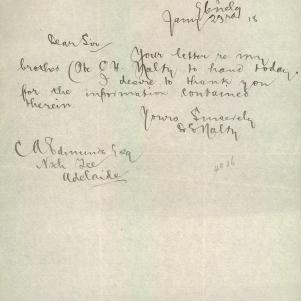 Ebinda
Jany 23rd 18
Dear Sir
Your letter re my
brother (Pte C H Nalty to hand today.
I desire to thank you
for the information contained
therein
Yours Sincerely
Nalty
C A Edmunds Esq
Nth Tce
Adelaide